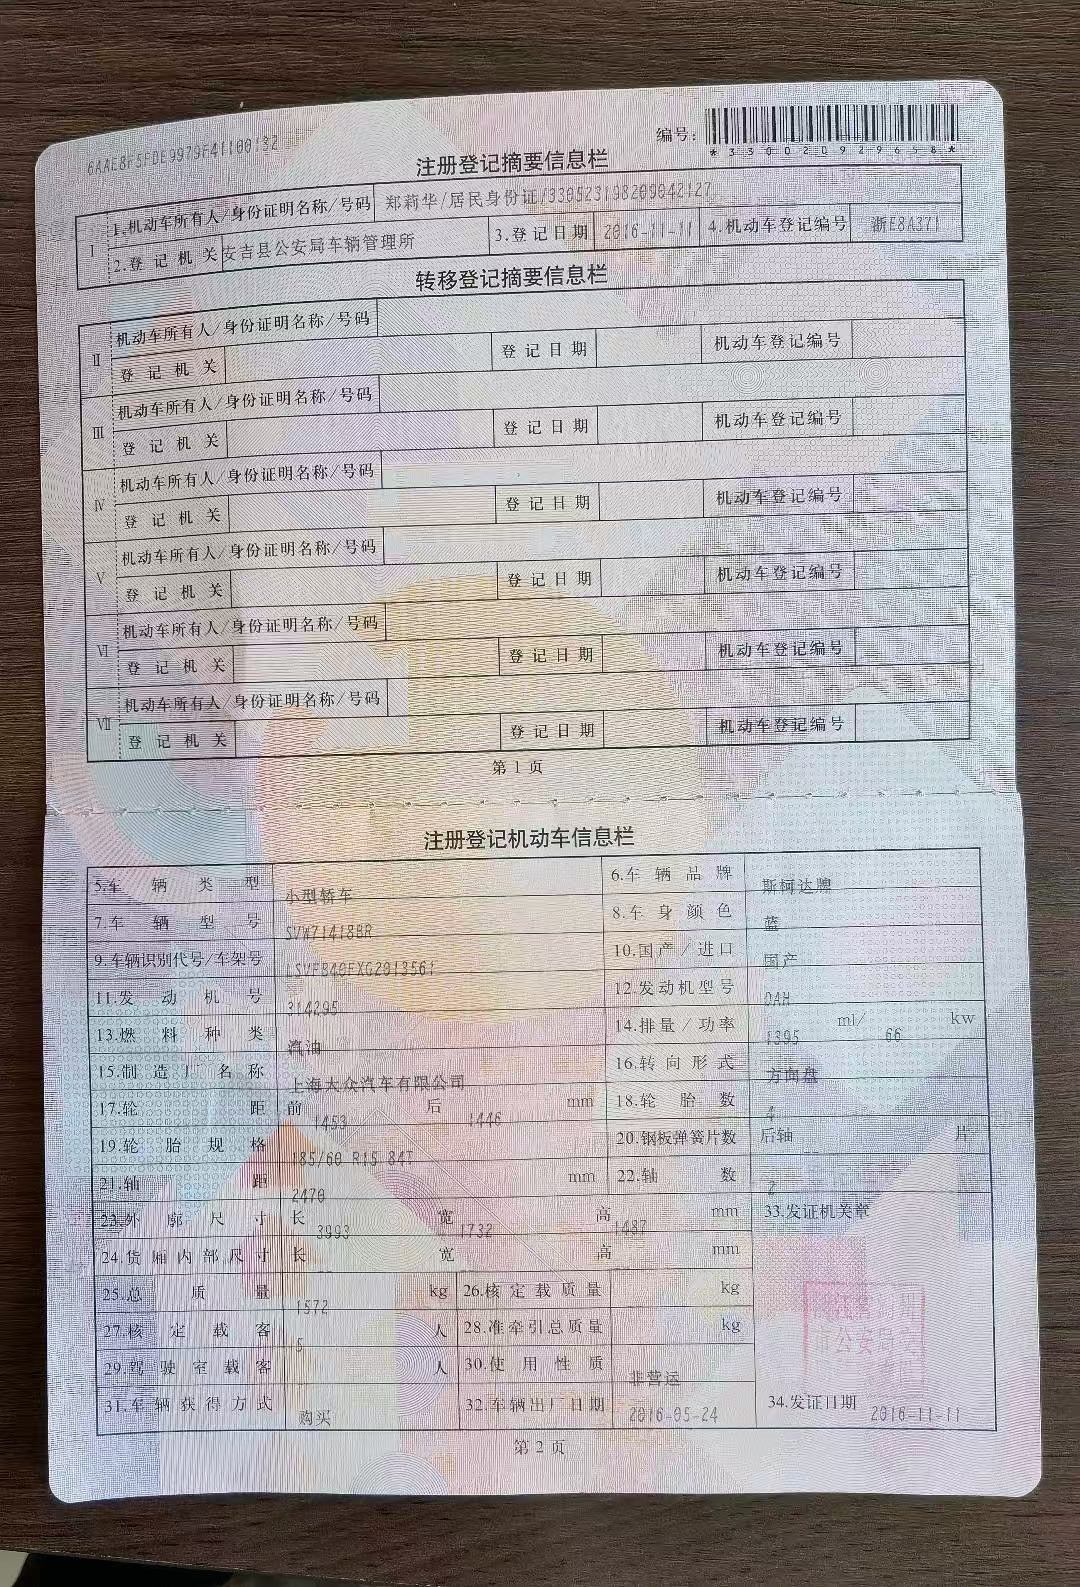 6AAE8F5FDE9979F41100132
编号:
*330020929658*
注册登记摘要信息栏
Ⅰ 1.机动车所有人/身份证明名称/号码 郑莉华/居民身份证/330523198209042127
2.登记机关 安吉县公安局车辆管理所 3.登记日期 2016-11-11 4.机动车登记编号 浙E8A371
转移登记摘要信息栏
Ⅱ 机动车所有人/身份证明名称/号码
登记机关 登记日期 机动车登记编号
Ⅲ 机动车所有人/身份证明名称/号码
登记机关 登记日期 机动车登记编号
Ⅳ 机动车所有人/身份证明名称/号码
登记机关 登记日期 机动车登记编号
Ⅴ 机动车所有人/身份证明名称/号码
登记机关 登记日期 机动车登记编号
Ⅵ 机动车所有人/身份证明名称/号码
登记机关 登记日期 机动车登记编号
Ⅶ 机动车所有人/身份证明名称/号码
登记机关 登记日期 机动车登记编号
第1页
注册登记机动车信息栏
5.车辆类型 小型轿车 6.车辆品牌 斯柯达牌
7.车辆型号 SVW71418BR 8.车身颜色 蓝
9.车辆识别代号/车架号 LSVFB40FXG2013561 10.国产/进口 国产
11.发动机号 314295 12.发动机型号 DAH
13.燃料种类 汽油 14.排量/功率 1395 ml/ 66 kw
15.制造厂名称 上海大众汽车有限公司 16.转向形式 方向盘
17.轮距 前 1453 后 1446 mm 18.轮胎数 4
19.轮胎规格 185/60 R15 84T 20.钢板弹簧片数 后轴 片
21.轴距 2470 mm 22.轴数 2
23.外廓尺寸 长 3993 宽 1732 高 1487 mm 33.发证机关章
24.货厢内部尺寸 长 宽 高 mm
25.总质量 1572 kg 26.核定载质量 kg
27.核定载客 5 人 28.准牵引总质量 kg
29.驾驶室载客 人 30.使用性质 非营运
31.车辆获得方式 购买 32.车辆出厂日期 2016-05-24 34.发证日期 2016-11-11
第2页